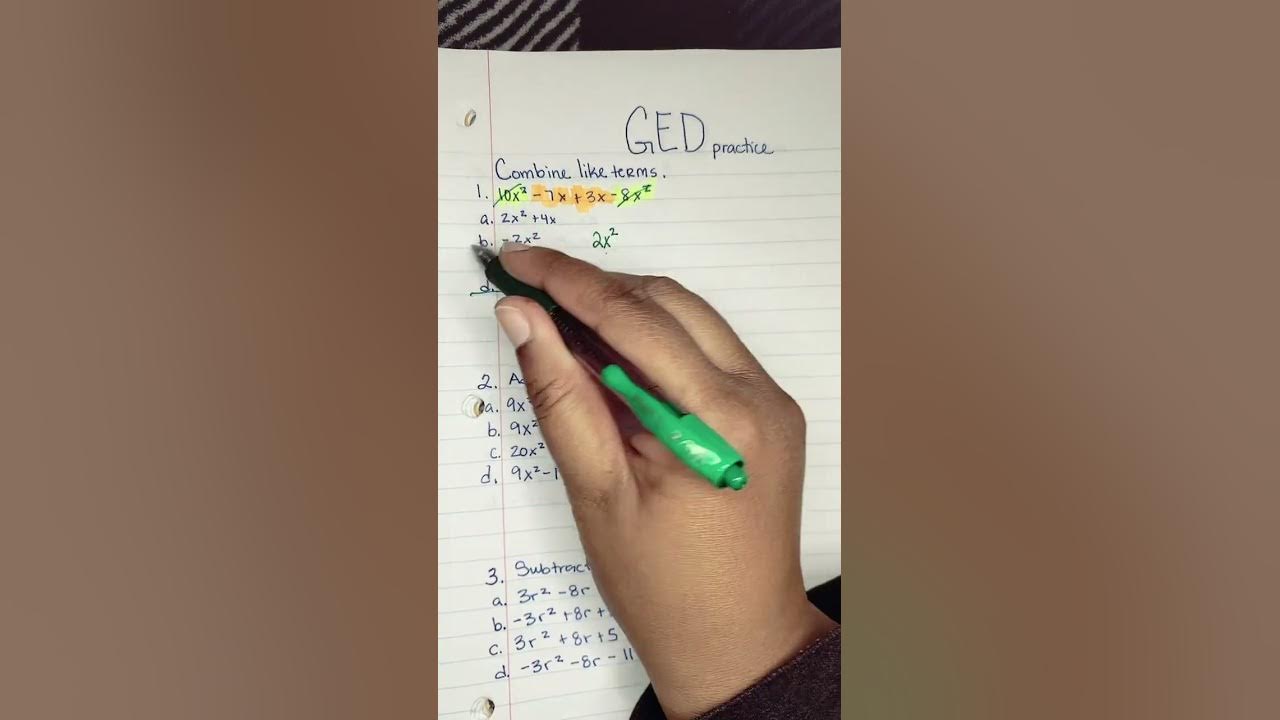 GED practice
Combine like terms.
1. 10x² - 7x + 3x - 8x²
a. 2x² + 4x
b. - 2x²
2x²
d.
2.
a. 9x²
b. 9x²
c. 20x²
d. 9x² - 1
3. Subtract
a. 3r² - 8r
b. -3r² + 8r +
c. 3r² + 8r + 5
d. -3r² - 8r - 11